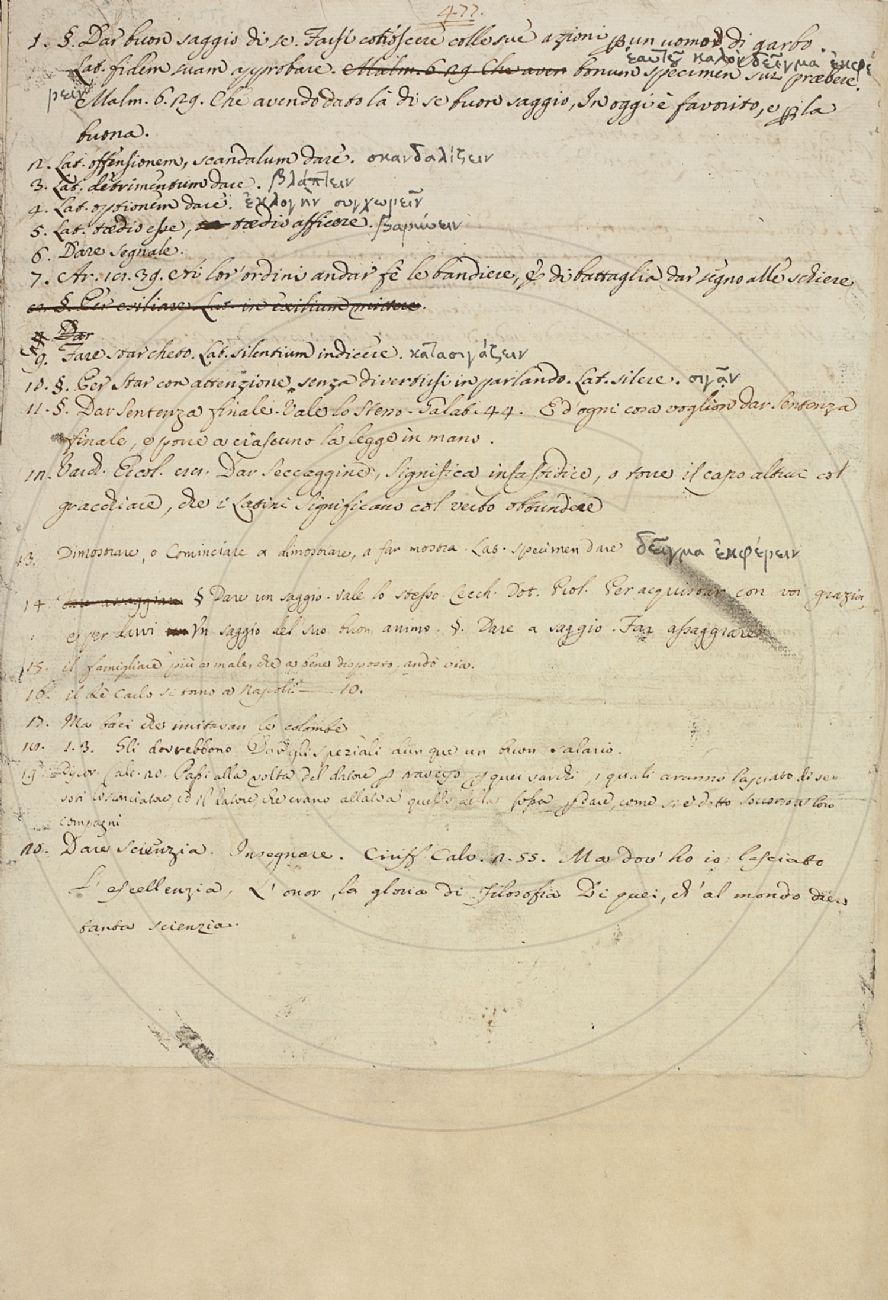 477.
1. §. Dar buon saggio di se. Farsi conoscere colle sue azioni p un uomo di garbo.
Lat. fidem suam approbare. Malm. 6. 29. Che aven bonum specimen sui præbere. ἑαυτοῦ καλὸν δεῖγμα ἐκφέ
ρειν Malm. 6. 29. Che avendo dato là di se buon saggio, In oggi è favorito, e p la
buona.
2. Lat. offensionem, scandalum dare. σκανδαλίζειν
3. Lat. detrimentum dare. βλάπτειν
4. Lat. optionem dare. ἐκλογὴν συγχωρεῖν
5. Lat. tædio esse, tædio afficere. βαρύνειν
6. Dare segnale.
7. Ar. 39. e ne lor'ordini andar fè le bandiere, E di battaglia dar segno alle schiere
§. Per esiliare. Lat. in exilium mittere.
Dar
9. Fare star cheto. Lat. silentium indicere. κατασιγάζειν
10. §. Per star con attenzione, senza divertirsi in parlando. Lat. silere. σιγᾷν
11. §. Dar sentenza finale. Vale lo steso. Galat. 44. E d'ogni cosa voglion dar sentenza
finale, e porre a ciascuno la legge in mano.
12. Varch. Ercol. Dar seccaggine, significa infastidire, o torre il capo altrui col
gracchiare, che i Latini significano col verbo obtundere
13. Dimostrare, o Cominciare a dimostrare, a far mostra. Lat. specimen dare δεῖγμα ἐκφέρειν
14. § Dare un saggio. vale lo stesso. Cecch. Dot. Prol. Per acquistar con voi grazia,
e per darvi Un saggio del suo buon animo. §. Dare a saggio. Far assaggiare
15. il famigliare più a male, che a bene disposto, andò via.
16. il Rè Carlo si tornò a Napoli
17. Ma baci che imitavan le colombe
1.3. Gli dovrebbono Dargli speziali dunque un buon salario.
19. Discor. Calc. 20. Passi alla volta del datore quei sardi, i quali aranno lasciato di se
sori sconciatore, ed il datore, che erano allato a quello della fossa p dare, come si è detto soccorso a loro
compagni
20. Dare scienzia. Insegnare. Ciriff. Calv. 2. 55. Ma dov' ho io lasciato
L' escellenzia, L' onor, la gloria di Filosofia Di quei, ch' al mondo dier
tanta scienzia.